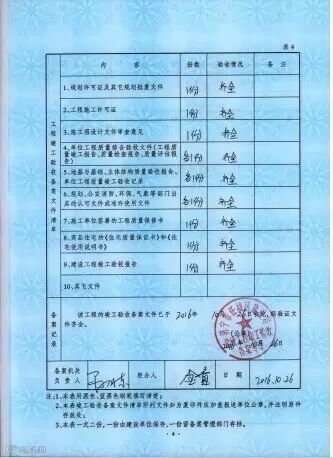 表4
内 容 份数 验收情况 备注
工程竣工验收备案文件清单
1、规划许可证及其它规划批复文件 1份 齐全
2、工程施工许可证 1份 齐全
3、施工图设计文件审查意见 1份 齐全
4、单位工程质量综合验收文件(工程质
量竣工报告、质量检查报告、质量评估报
告) 各1份 齐全
5、地基与基础、主体结构质量验收报告、
单位工程质量竣工验收记录 各1份 齐全
6、规划、公安消防、环保、气象等部门出
具的认可文件或准许使用文件 各1份 齐全
7、施工单位签署的工程质量保修书 1份 齐全
8、商品住宅的《住宅质量保证书》和《住
宅使用说明书》 1份 齐全
9、建设工程竣工验收报告 1份 齐全
10、其它文件
备案记录
该工程的竣工验收备案文件已于 2016年 10月 26日收讫,经验证文
件齐全。
备案机关
负责人
经办人
日期 2016.10.26
注:1、本表用黑色、蓝黑色钢笔填写清楚;
2、本表竣工验收备案文件清单所列文件如为复印件应加盖报送单位公章,并注明原件
存放处;
3、本表一式二份,一份由建设单位保存,一份留备案管理部门存档。
- 4 -